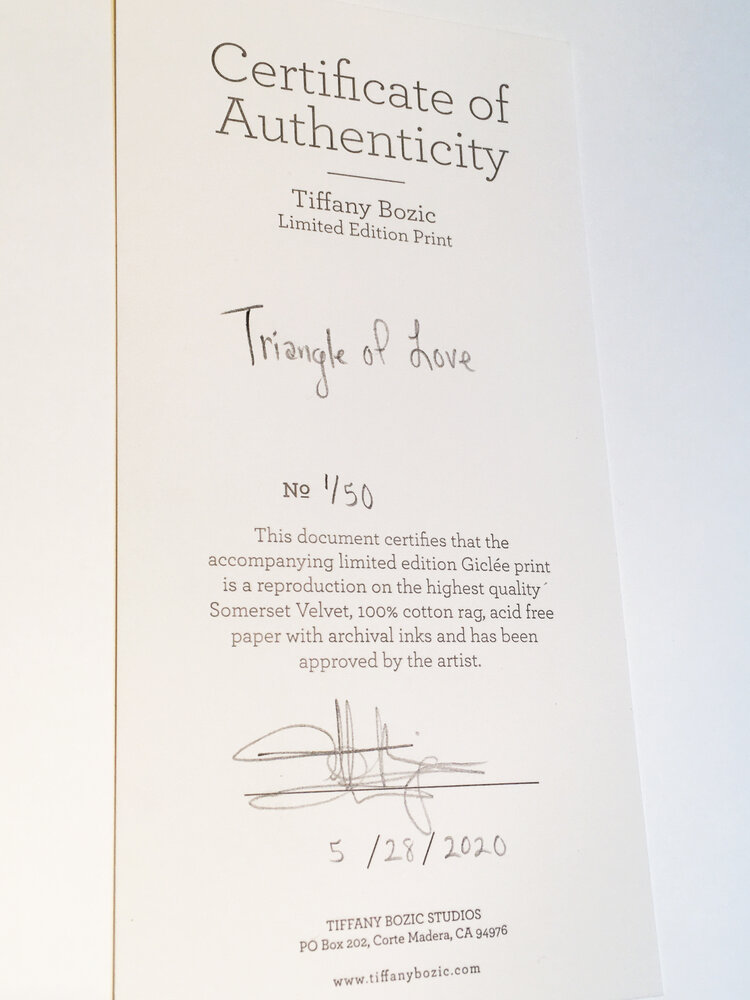 Certificate of
Authenticity
Tiffany Bozic
Limited Edition Print
Triangle of Love
Nº 1/50
This document certifies that the
accompanying limited edition Giclée print
is a reproduction on the highest quality
Somerset Velvet, 100% cotton rag, acid free
paper with archival inks and has been
approved by the artist.
5 /28/2020
TIFFANY BOZIC STUDIOS
PO Box 202, Corte Madera, CA 94976
www.tiffanybozic.com